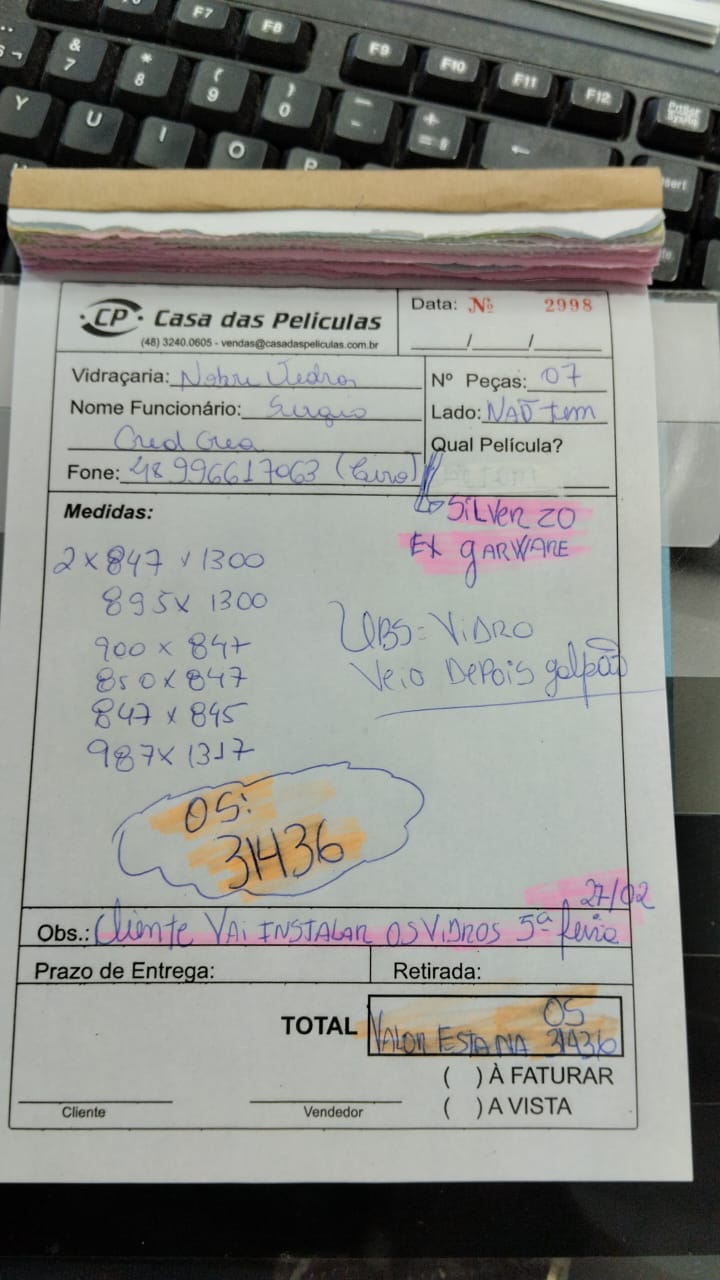 F7
F8
F9
F10
F11
F12
PrtScr
SysRq
&
7
*
8
(
9
)
0
Y
U
I
O
P
·CP· Casa das Películas
(48) 3240.0605 - vendas@casadaspeliculas.com.br
Data: Nº 2998
/ /
Vidraçaria: Nobre Vedros
Nº Peças: 07
Nome Funcionário: Sergio
Lado: NAÕ tem
Cred Crea
Qual Película?
Fone: 48 996617063
Medidas:
SILVER 20
EX GARWARE
2 x 847 x 1300
895 x 1300
900 x 847
850 x 847
847 x 845
987 x 1317
UBS = VIDRO
Veio DEPOIS galpão
OS:
31436
27/02
Obs.: Cliente VAI INSTALAR OS VIDROS 5ª feira
Prazo de Entrega:
Retirada:
TOTAL
OS
VALOR ESTA NA 31436
( ) À FATURAR
( ) A VISTA
Cliente
Vendedor